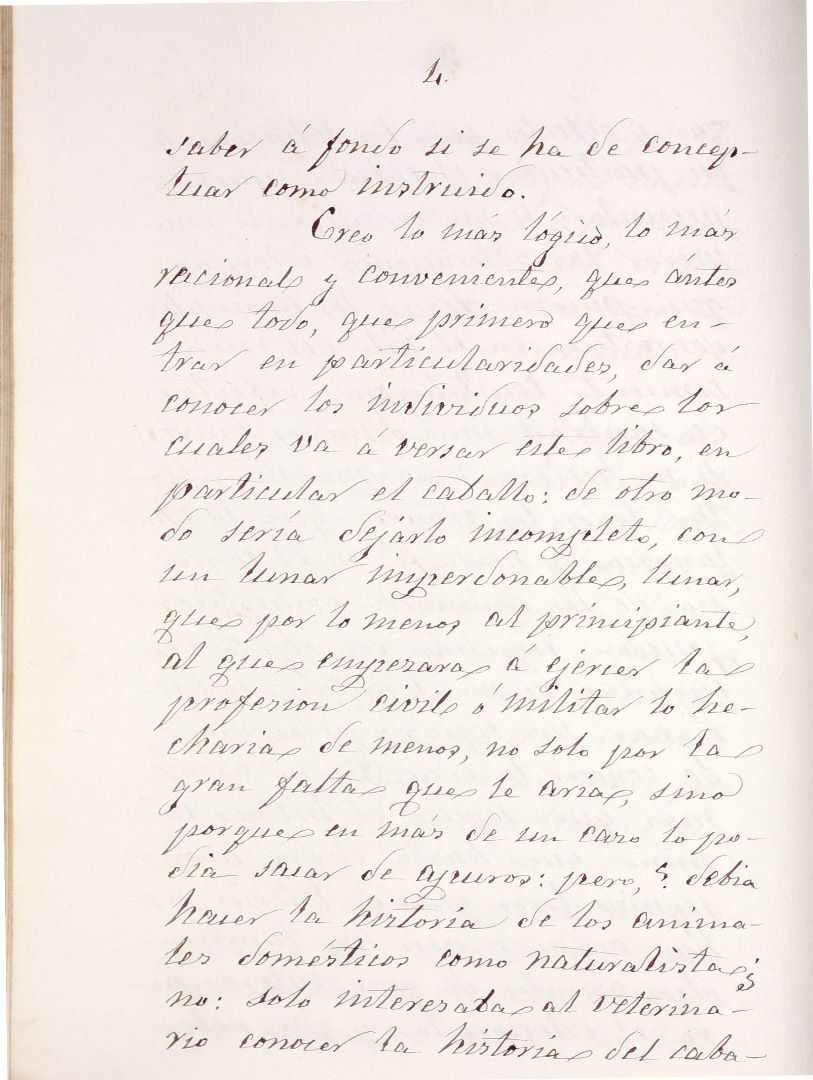 4.
saber á fondo si se ha de concep-
tuar como instruido.
Creo lo más lógico, lo más
racional y conveniente, que ántes
que todo, que primero que en-
trar en particularidades, dar á
conocer los individuos sobre los
cuales va á versar este libro, en
particular el caballo: de otro mo-
do sería dejarlo incompleto, con
un lunar imperdonable, lunar,
que por lo menos al principiante,
al que empezara á ejercer la
profesion civil ó militar lo he-
charia de menos, no solo por la
gran falta que le aria, sino
porque en más de un caso lo po-
dia sacar de apuros: pero, ¿ debia
hacer la historia de los anima-
les domésticos como naturalista?
no: solo interesaba al veterina-
rio conocer la historia del caba-